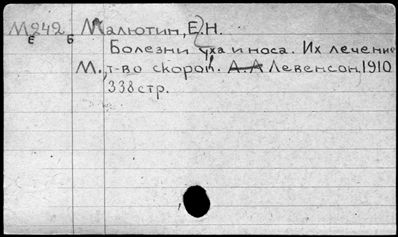 М242 Малютин, Е. Н.
Е Б
Болезни уха и носа. Их лечение
М., т-во скороп. А. А Левенсон, 1910
338 стр.